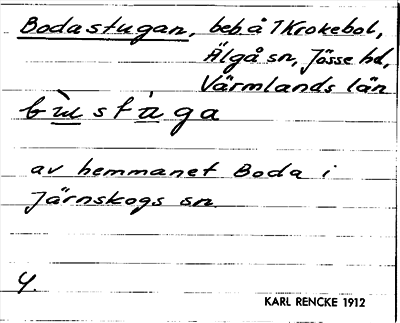 Bodastugan, beb. å 1 Krokebol,
Älgå sn, Jösse hd,
Värmlands län
bu̳̇̀stu̳̇̀ga
av hemmanet Boda i
Järnskogs sn.
4.
KARL RENCKE 1912